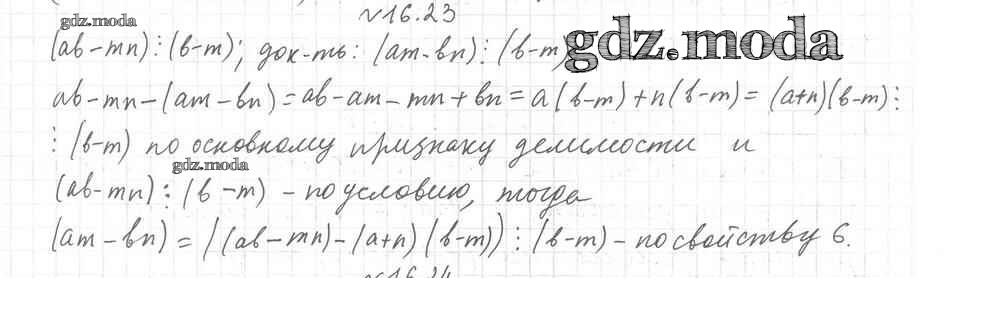 №16.23
gdz.moda
(ab-mn)⋮(b-m); док-ть: (am-bn)⋮(b-m)
gdz.moda
ab-mn-(am-bn)=ab-am-mn+bn=a(b-m)+n(b-m)=(a+n)(b-m)⋮
⋮(b-m) по основному признаку делимости и
gdz.moda
(ab-mn)⋮(b-m) - по условию, тогда
(am-bn)=((ab-mn)-(a+n)(b-m))⋮(b-m) - по свойству 6.